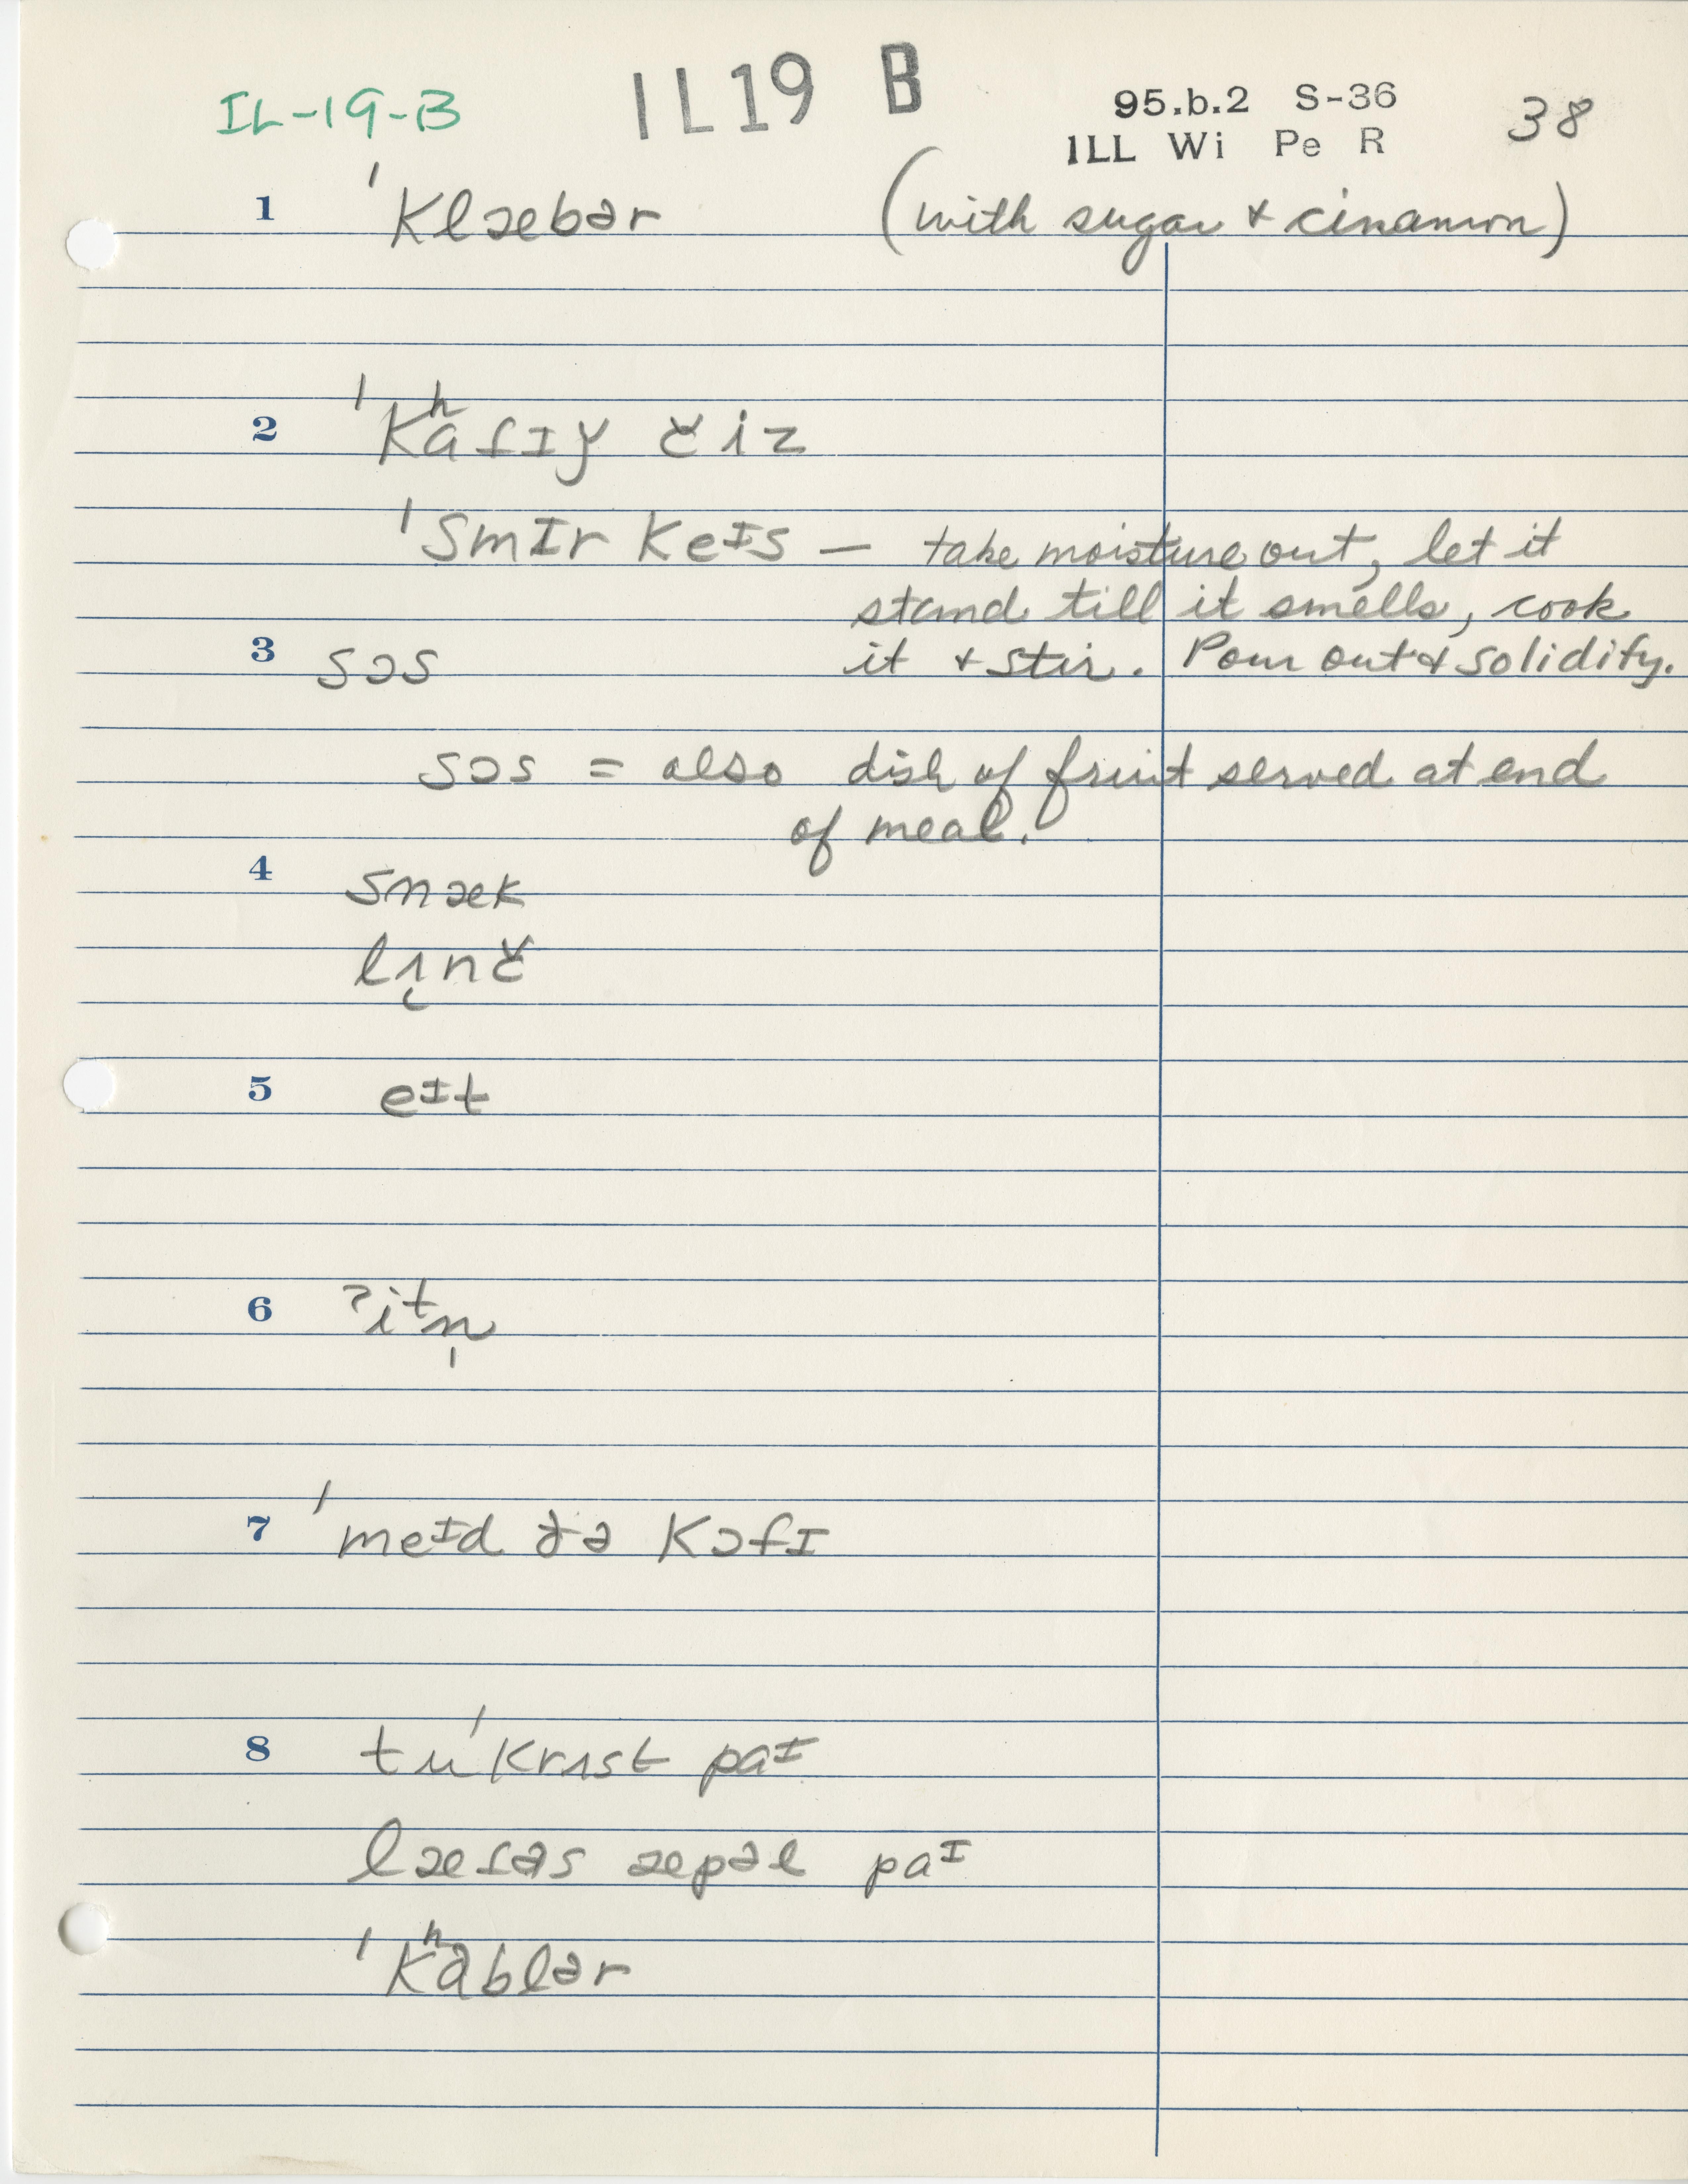 IL-19-B 1L19 B 95.b.2 S-36 38
1LL Wi Pe R
1 ˈklæbər (with sugar & cinamon)
2 ˈkʰafɪy čiz
ˈsmɪr keɪs — take moisture out, let it
stand till it smells, cook
3 sɔs it & stir. Pour out & solidify.
sɔs = also dish of fruit served at end
of meal.
4 snæk
lʌ̨nč
5 eɪt
6 ʔitn̩
7 ˈmeɪd ðə kɔfɪ
8 tuˈkrʌst paɪ
læfəs æpəl paɪ
ˈkʰablər